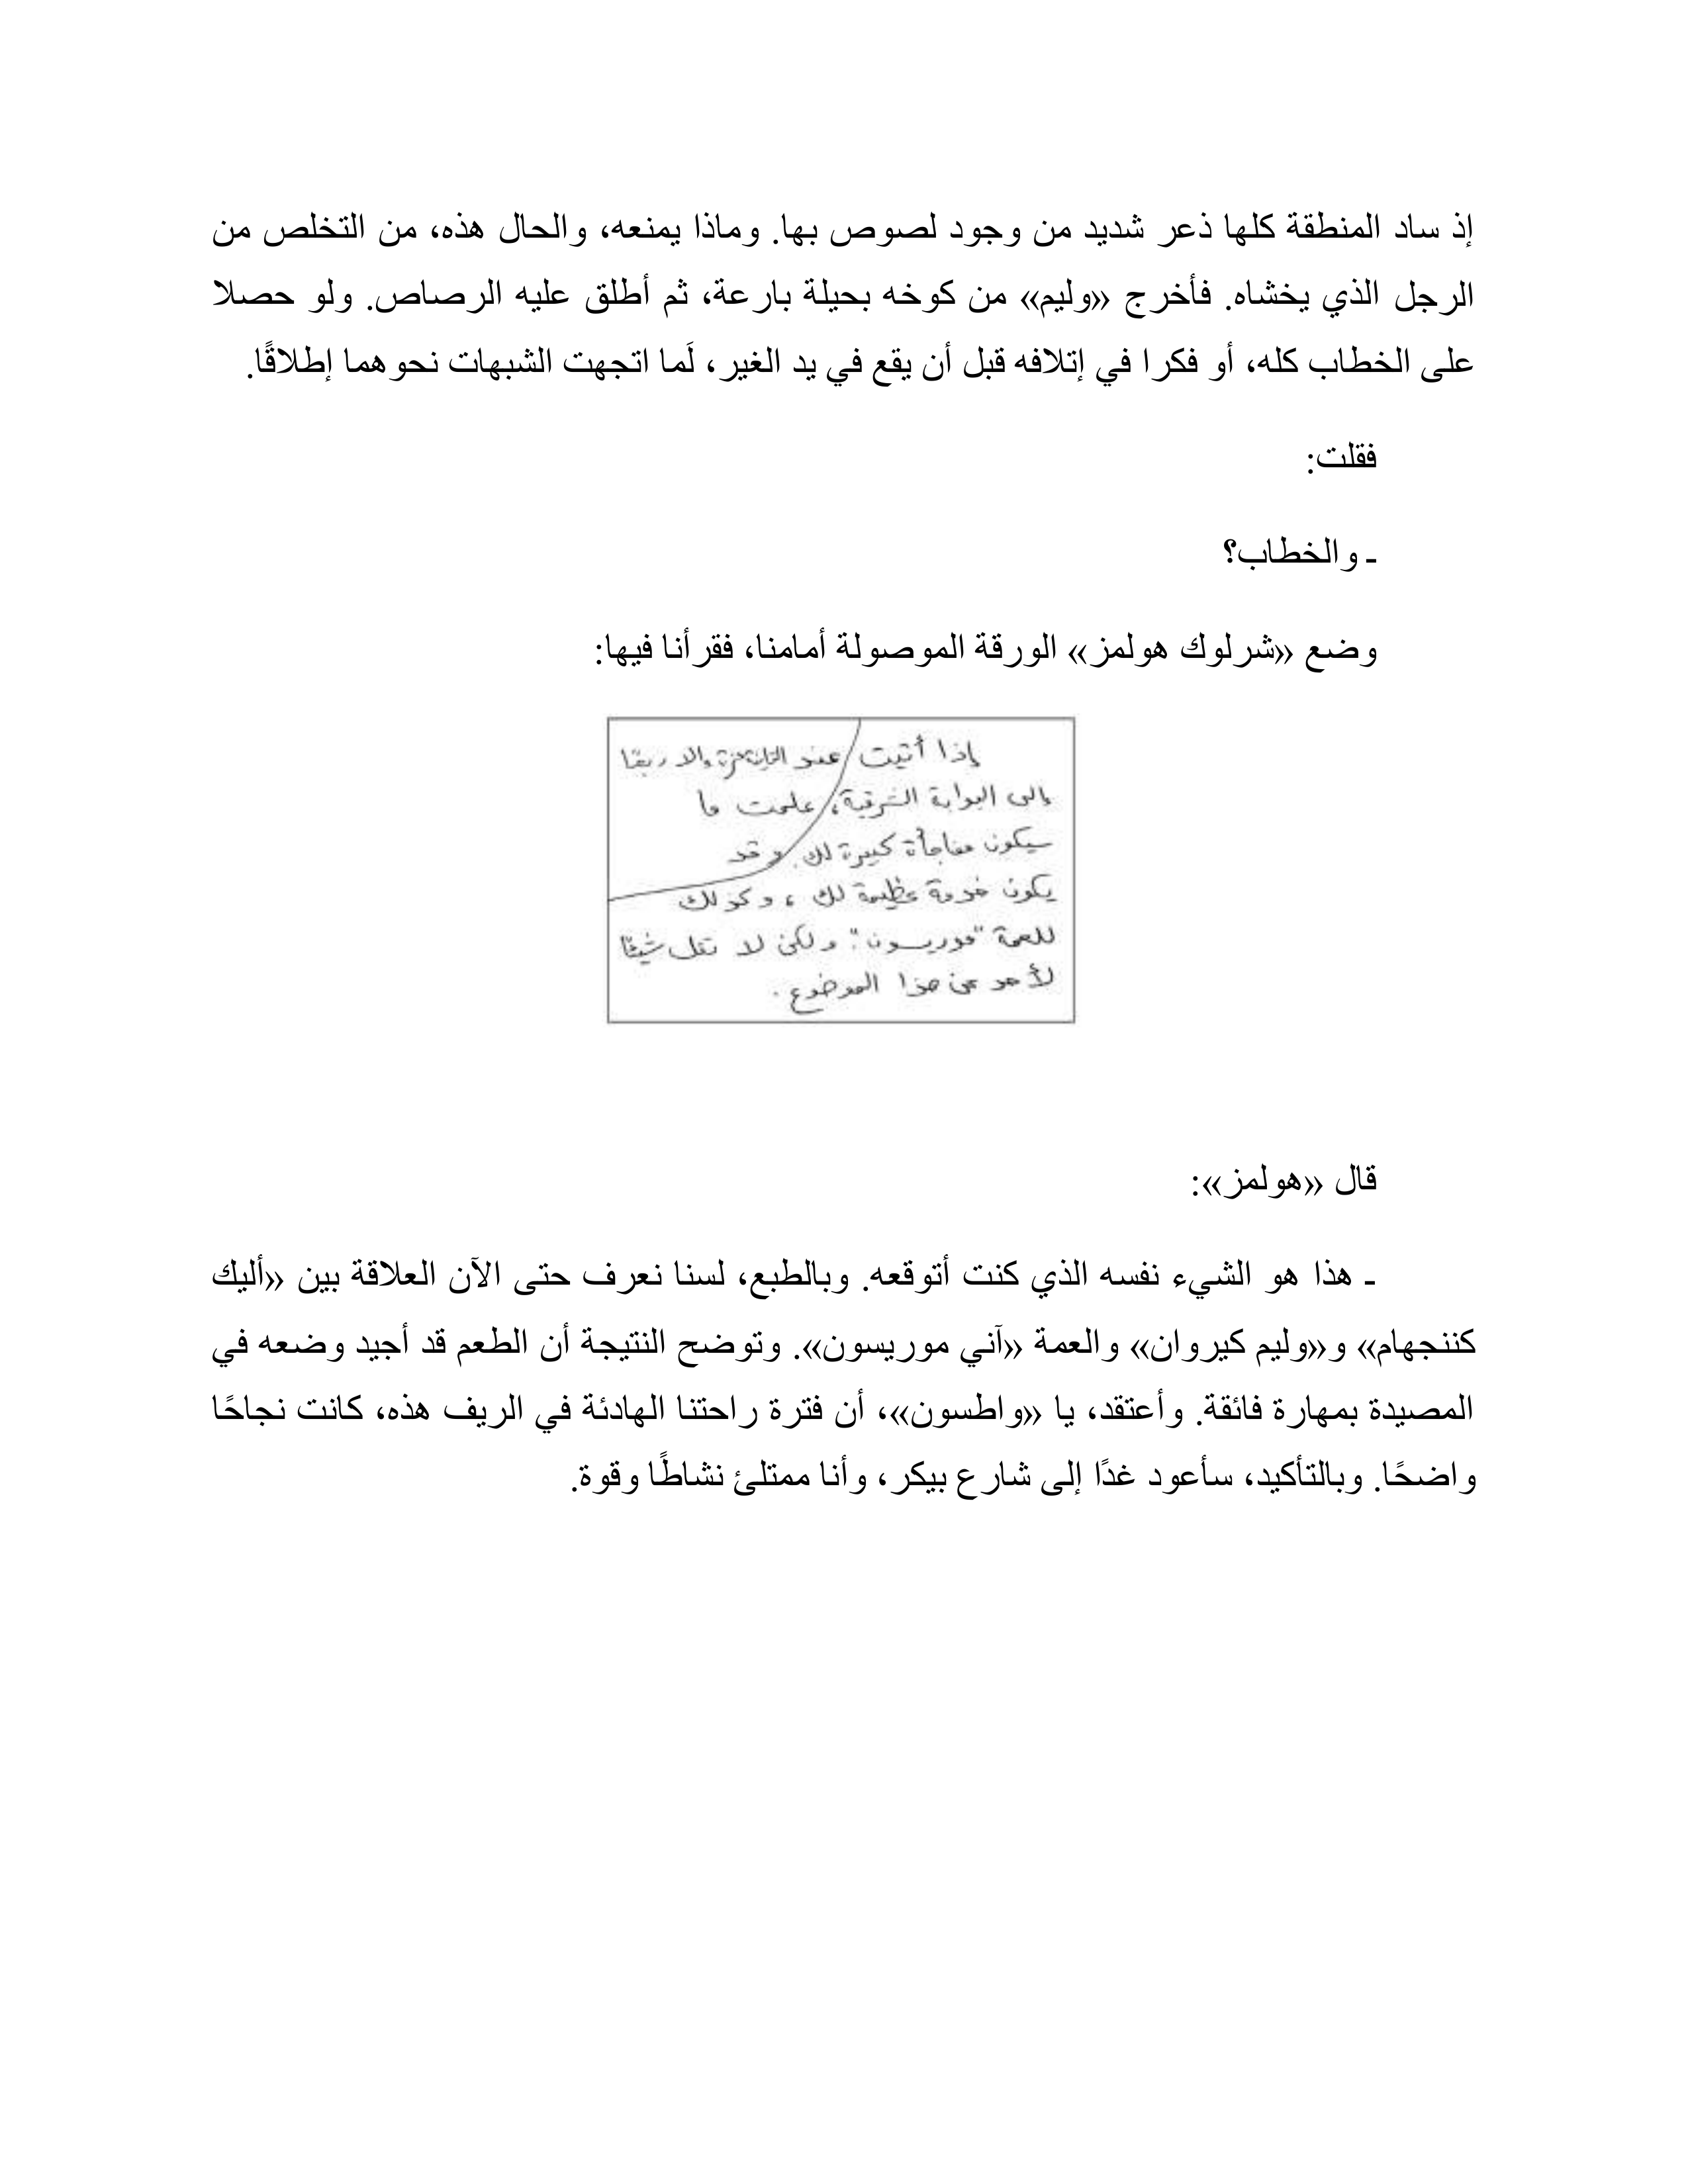 إذ ساد المنطقة كلها ذعر شديد من وجود لصوص بها. وماذا يمنعه، والحال هذه، من التخلص من
الرجل الذي يخشاه. فأخرج «وليم» من كوخه بحيلة بارعة، ثم أطلق عليه الرصاص. ولو حصلا
على الخطاب كله، أو فكرا في إتلافه قبل أن يقع في يد الغير، لَما اتجهت الشبهات نحوهما إطلاقًا.
فقلت:
ـ والخطاب؟
وضع «شرلوك هولمز» الورقة الموصولة أمامنا، فقرأنا فيها:
إذا أتيت عند الثانية عشرة والا ربعًا
إلى البوابة الشرقية، علمت ما
سيكون مفاجأة كبيرة لك. وقد
يكون خدمة عظيمة لك، وكذلك
للعمة "موريسون". ولكن لا تقل شيئًا
لأحد عن هذا الموضوع.
قال «هولمز»:
ـ هذا هو الشيء نفسه الذي كنت أتوقعه. وبالطبع، لسنا نعرف حتى الآن العلاقة بين «أليك
كننجهام» و«وليم كيروان» والعمة «آني موريسون». وتوضح النتيجة أن الطعم قد أجيد وضعه في
المصيدة بمهارة فائقة. وأعتقد، يا «واطسون»، أن فترة راحتنا الهادئة في الريف هذه، كانت نجاحًا
واضحًا. وبالتأكيد، سأعود غدًا إلى شارع بيكر، وأنا ممتلئ نشاطًا وقوة.